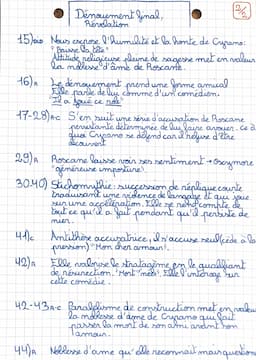 Dénouement final,
Révélation
2/2
15) bis Nous expose l'humilité et la honte de Cyrano:
"baisse la tête"
Attitude religieuse pleine de sagesse met en valeur
la noblesse d'âme de Roxane.
16) R Le dénouement prend une forme amicale
Elle parle de lui comme d'un comédien.
Il a joué ce rôle
17-28) R-C S'en suit une série d'accusation de Roxane
persistante déterminée de lui faire avouer. Ce à
quoi Cyrano se défend car il refuse d'être
découvert
29) R Roxane laisse voir ses sentiment → oxymore
"généreuse imposture".
30-40) Stichomythie: succession de réplique courte
traduisant une violence de langage et qui joue
sur une accélération. Elle se rend compte de
tout ce qu'il a fait pendant qu'il persiste de
nier.
41) C Antithèse accusatrice, il s'accuse seul (cède à la
pression) "Mon cher amour".
42) R Elle valorise le stratagème en le qualifiant
de résurrection. "Mort" "nais". Elle l'interroge sur
cette comédie.
42-43 R-C Parallélisme de construction met en valeur
la noblesse d'âme de Cyrano qui fait
passer la mort de son ami avant son
amour.
44) R Noblesse d'âme qu'elle reconnait mais questionne